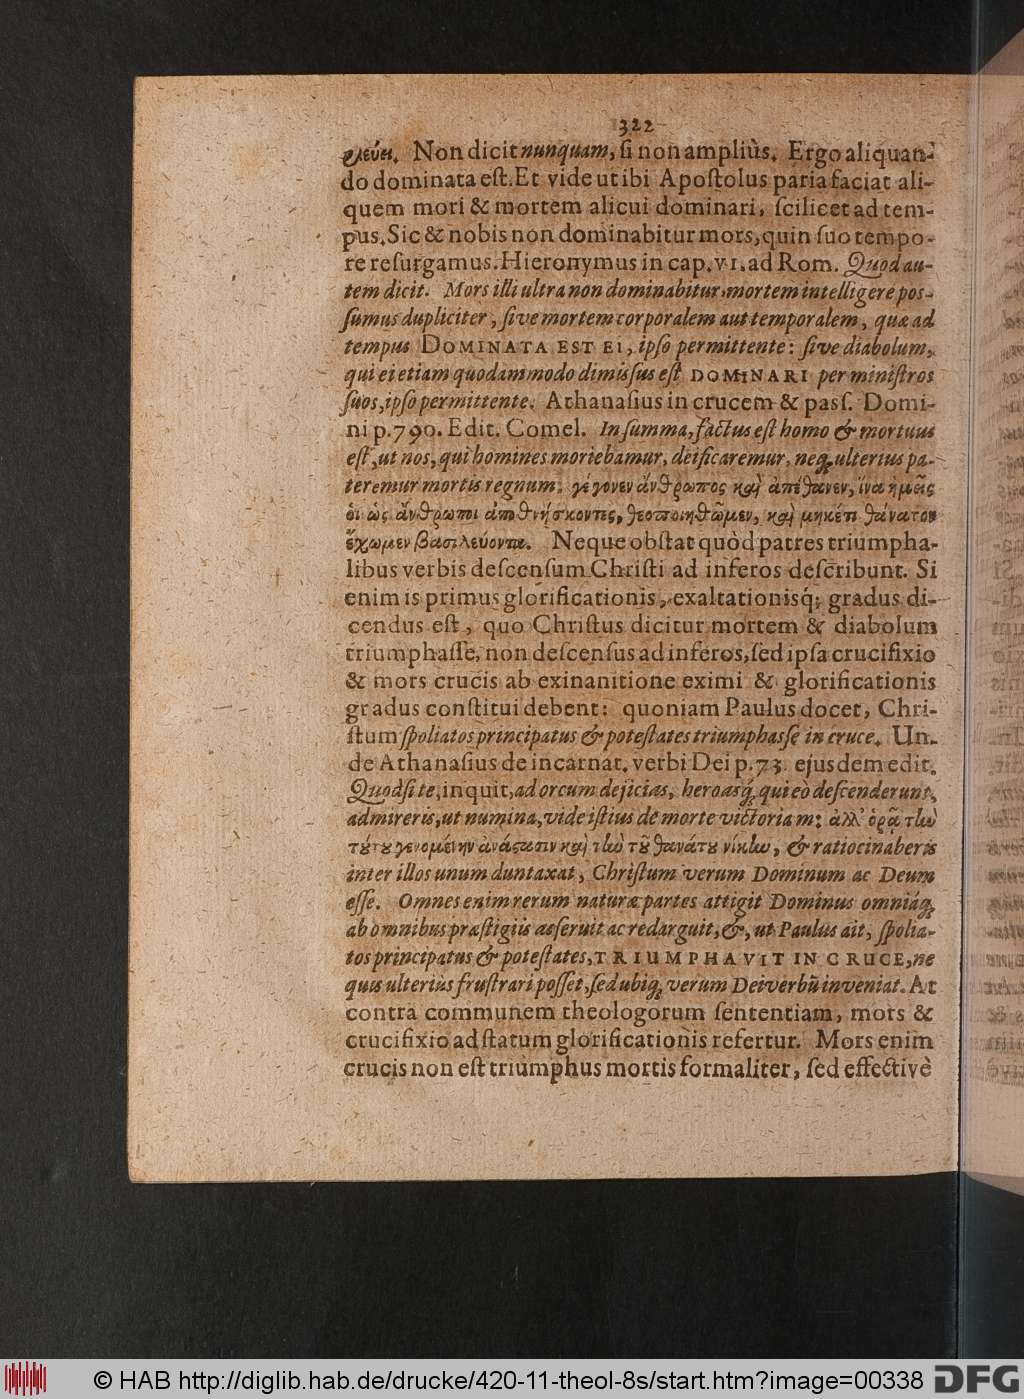 322
ριεύει. Non dicit nunquam, ſi non ampliùs. Ergo aliquan-
do dominata eſt. Et vide ut ibi Apoſtolus paria faciat ali-
quem mori & mortem alicui dominari, ſcilicet ad tem-
pus. Sic & nobis non dominabitur mors, quin ſuo tempo-
re reſurgamus. Hieronymus in cap. VI. ad Rom. Quod au-
tem dicit. Mors illi ultra non dominabitur, mortem intelligere pos-
ſumus dupliciter, ſive mortem corporalem aut temporalem, quæ ad
tempus DOMINATA EST EI, ipſo permittente: ſive diabolum,
qui ei etiam quodammodo dimisſus eſt DOMINARI per miniſtros
ſuos, ipſo permittente. Athanaſius in crucem & paſſ. Domi-
ni p. 790. Edit. Comel. In ſumma, factus eſt homo & mortuus
eſt, ut nos, qui homines moriebamur, deificaremur, neq; ulterius pa-
teremur mortis regnum. γέγονεν ἄνθρωπος καὶ ἀπέθανεν, ἵνα ἡμεῖς
οἱ ὡς ἄνθρωποι ἀποθνήσκοντες, θεοποιηθῶμεν, καὶ μηκέτι θάνατον
ἔχωμεν βασιλεύοντα. Neque obſtat quòd patres triumpha-
libus verbis deſcenſum Chriſti ad inferos deſcribunt. Si
enim is primus glorificationis, exaltationisq́; gradus di-
cendus eſt, quo Chriſtus dicitur mortem & diabolum
triumphaſſe, non deſcenſus ad inferos, ſed ipſa crucifixio
& mors crucis ab exinanitione eximi & glorificationis
gradus conſtitui debent: quoniam Paulus docet, Chri-
ſtum ſpoliatos principatus & poteſtates triumphasſe in cruce. Un-
de Athanaſius de incarnat. verbi Dei p. 73. ejusdem edit.
Quodſi te, inquit, ad orcum dejicias, heroasq́;, qui eò deſcenderunt,
admireris, ut numina, vide iſtius de morte victoriam: ἀλλ' ὁρᾷ τὴν
τούτου γενομένην ἀνάστασιν καὶ τὴν τοῦ θανάτου νίκην, & ratiocinaberis
inter illos unum duntaxat, Chriſtum verum Dominum ac Deum
eſſe. Omnes enim rerum naturæ partes attigit Dominus omniáq;
ab omnibus præſtigiis asſeruit ac redarguit, &, ut Paulus ait, ſpolia-
tos principatus & poteſtates, TRIUMPHAVIT IN CRUCE, ne
quis ulteriùs fruſtrari poſſet, ſed ubiq; verum Dei verbū inveniat. At
contra communem theologorum ſententiam, mors &
crucifixio ad ſtatum glorificationis refertur. Mors enim
crucis non eſt triumphus mortis formaliter, ſed effectivè
© HAB http://diglib.hab.de/drucke/420-11-theol-8s/start.htm?image=00338
DFG